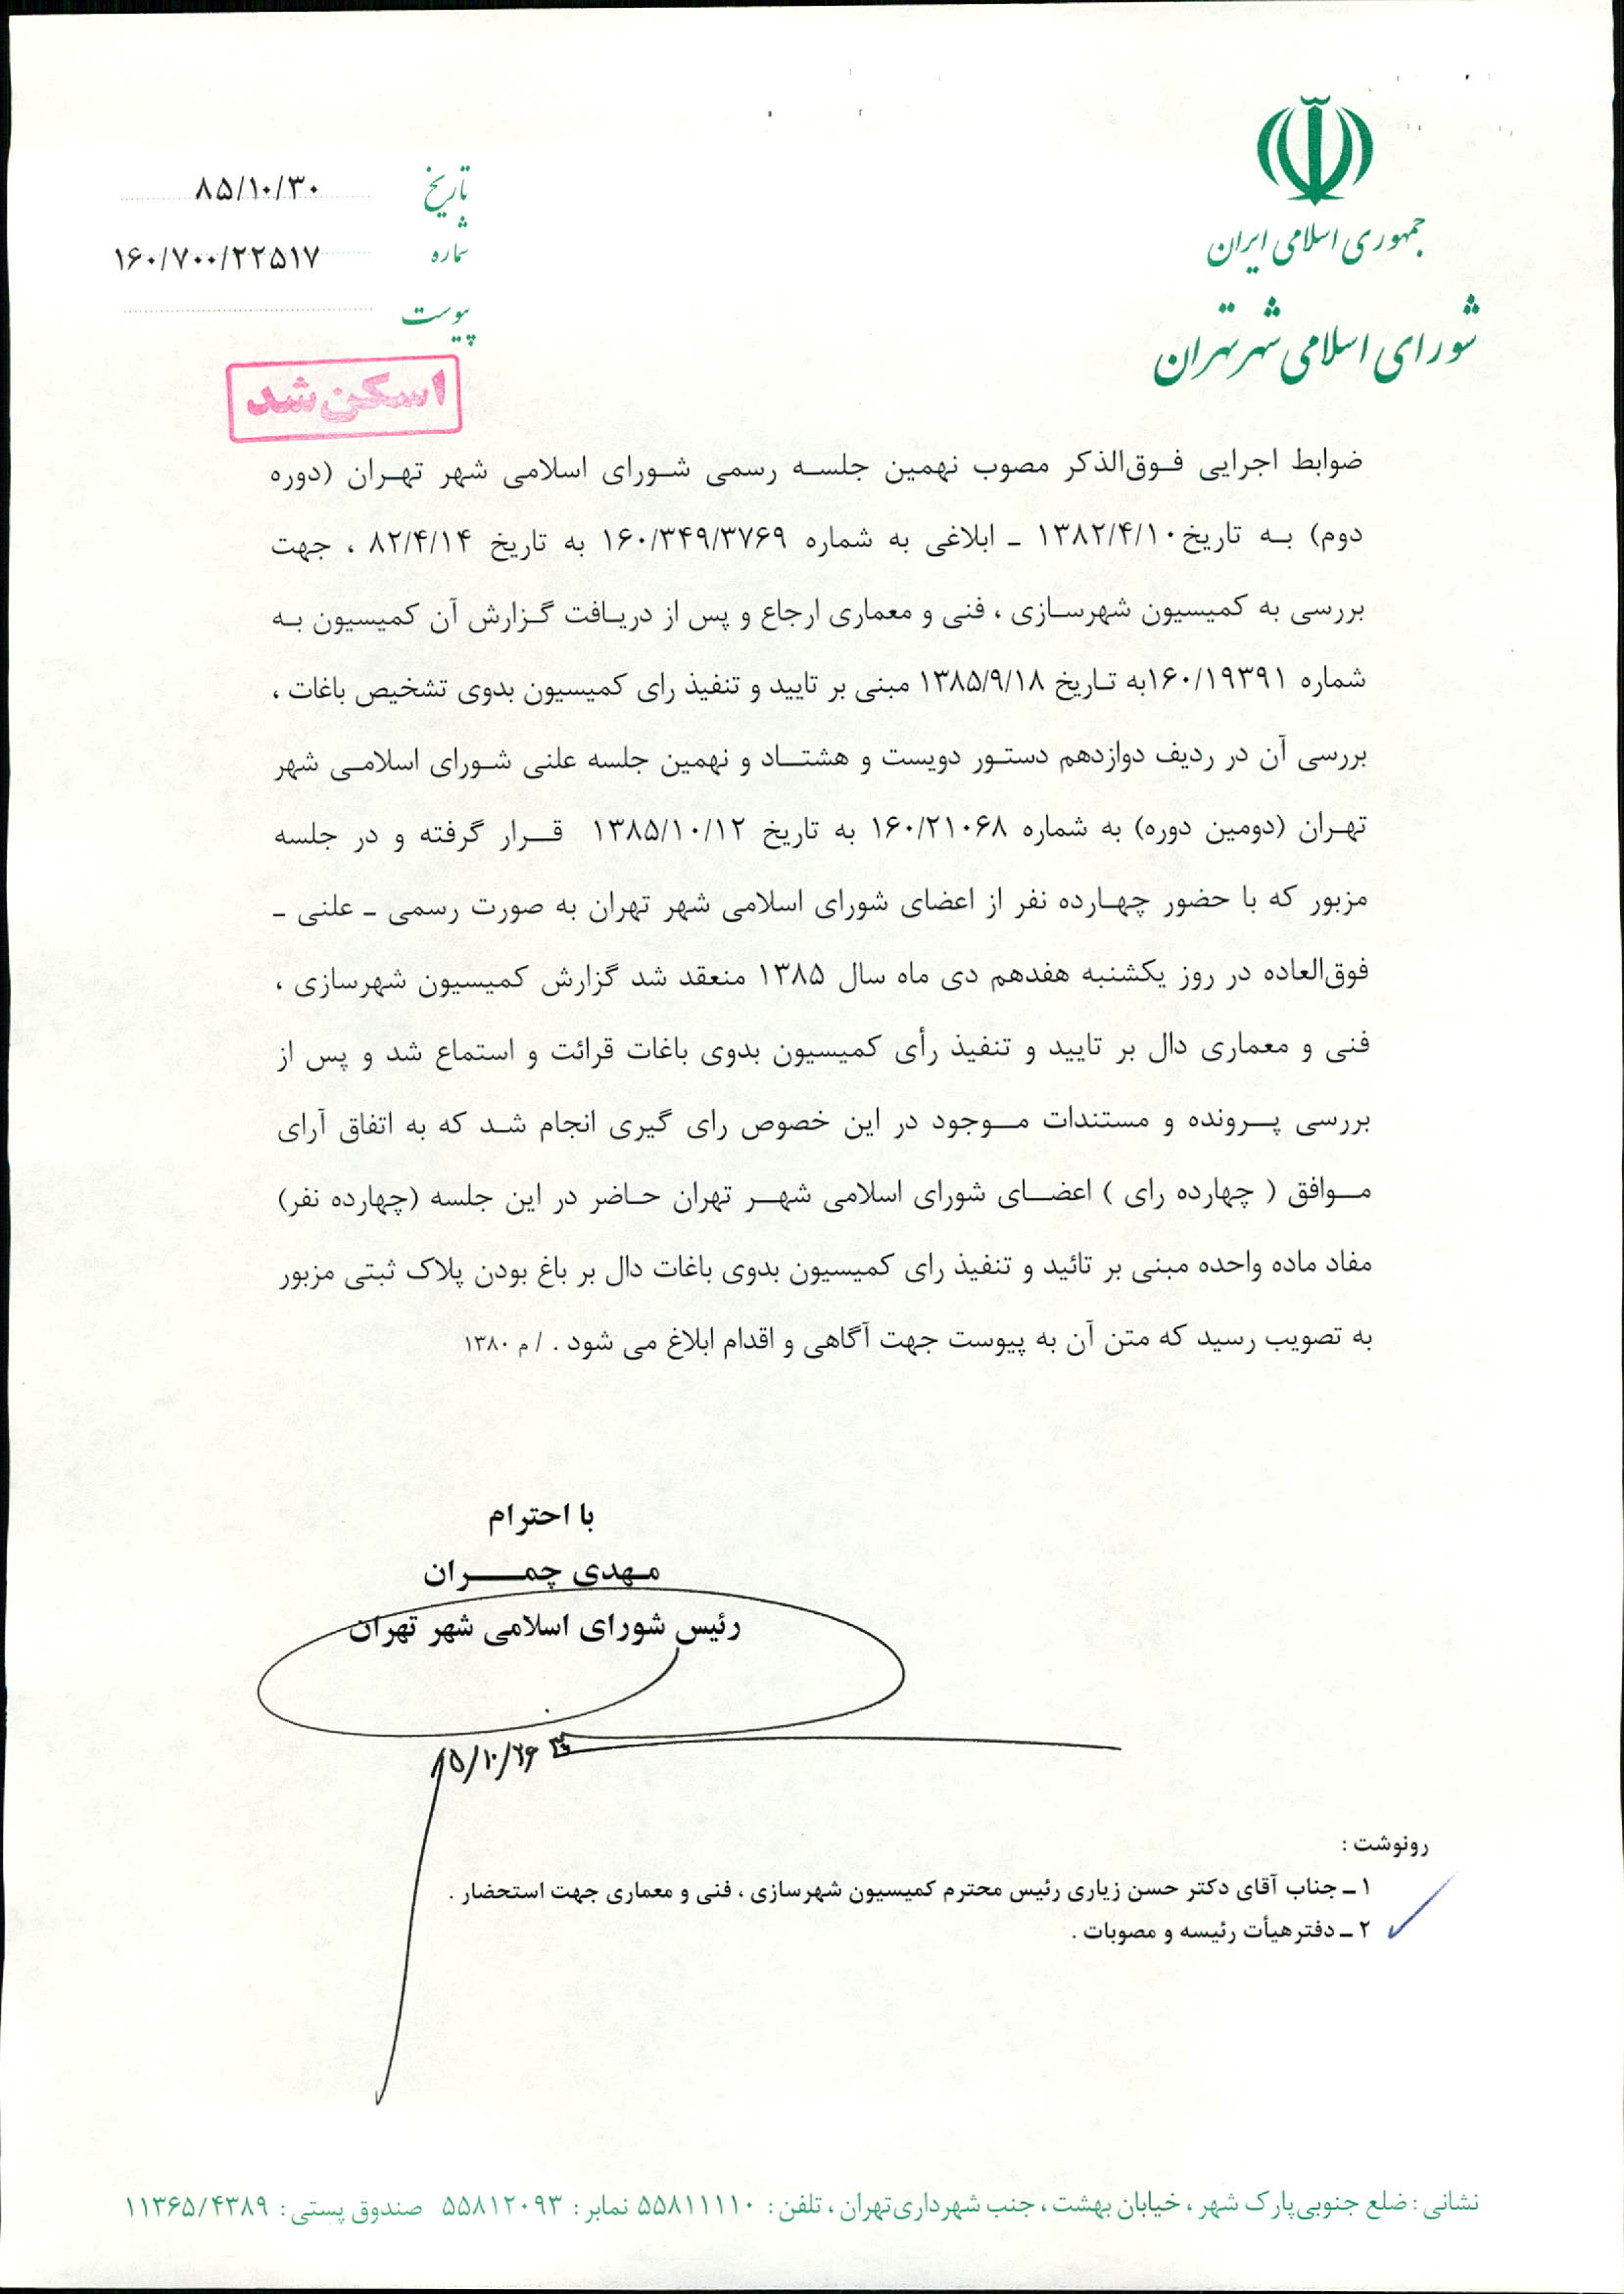 جمهوری اسلامی ایران
شورای اسلامی شهر تهران
تاریخ ۸۵/۱۰/۳۰
شماره ۱۶۰/۷۰۰/۲۲۵۱۷
پیوست
اسکن شد
ضوابط اجرایی فوق‌الذکر مصوب نهمین جلسه رسمی شورای اسلامی شهر تهران (دوره
دوم) به تاریخ ۱۳۸۲/۴/۱۰ ـ ابلاغی به شماره ۱۶۰/۳۴۹/۳۷۶۹ به تاریخ ۸۲/۴/۱۴ ، جهت
بررسی به کمیسیون شهرسازی ، فنی و معماری ارجاع و پس از دریافت گزارش آن کمیسیون به
شماره ۱۶۰/۱۹۳۹۱به تاریخ ۱۳۸۵/۹/۱۸ مبنی بر تایید و تنفیذ رای کمیسیون بدوی تشخیص باغات ،
بررسی آن در ردیف دوازدهم دستور دویست و هشتاد و نهمین جلسه علنی شورای اسلامی شهر
تهران (دومین دوره) به شماره ۱۶۰/۲۱۰۶۸ به تاریخ ۱۳۸۵/۱۰/۱۲ قرار گرفته و در جلسه
مزبور که با حضور چهارده نفر از اعضای شورای اسلامی شهر تهران به صورت رسمی ـ علنی ـ
فوق‌العاده در روز یکشنبه هفدهم دی ماه سال ۱۳۸۵ منعقد شد گزارش کمیسیون شهرسازی ،
فنی و معماری دال بر تایید و تنفیذ رأی کمیسیون بدوی باغات قرائت و استماع شد و پس از
بررسی پرونده و مستندات موجود در این خصوص رای گیری انجام شد که به اتفاق آرای
موافق ( چهارده رای ) اعضای شورای اسلامی شهر تهران حاضر در این جلسه (چهارده نفر)
مفاد ماده واحده مبنی بر تائید و تنفیذ رای کمیسیون بدوی باغات دال بر باغ بودن پلاک ثبتی مزبور
به تصویب رسید که متن آن به پیوست جهت آگاهی و اقدام ابلاغ می شود . / م ۱۳۸۰
با احترام
مهدی چمران
رئیس شورای اسلامی شهر تهران
۸۵/۱۰/۲۶
رونوشت :
۱ ـ جناب آقای دکتر حسن زیاری رئیس محترم کمیسیون شهرسازی ، فنی و معماری جهت استحضار .
۲ ـ دفتر هیأت رئیسه و مصوبات .
نشانی : ضلع جنوبی پارک شهر ، خیابان بهشت ، جنب شهرداری تهران ، تلفن : ۵۵۸۱۱۱۱۰ نمابر : ۵۵۸۱۲۰۹۳ صندوق پستی : ۱۱۳۶۵/۴۳۸۹